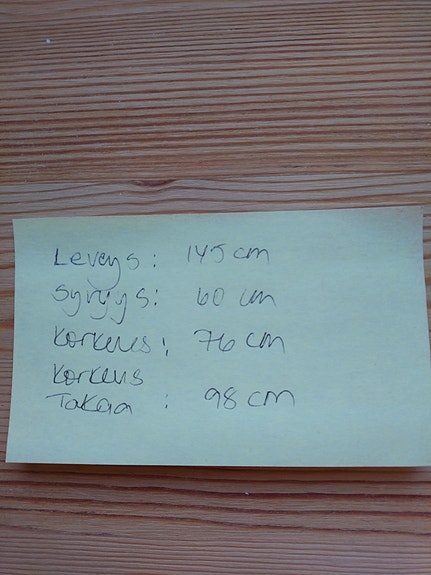 Leveys: 145 cm
Syvyys: 60 cm
Korkeus: 76 cm
Korkeus
Takaa : 98 cm